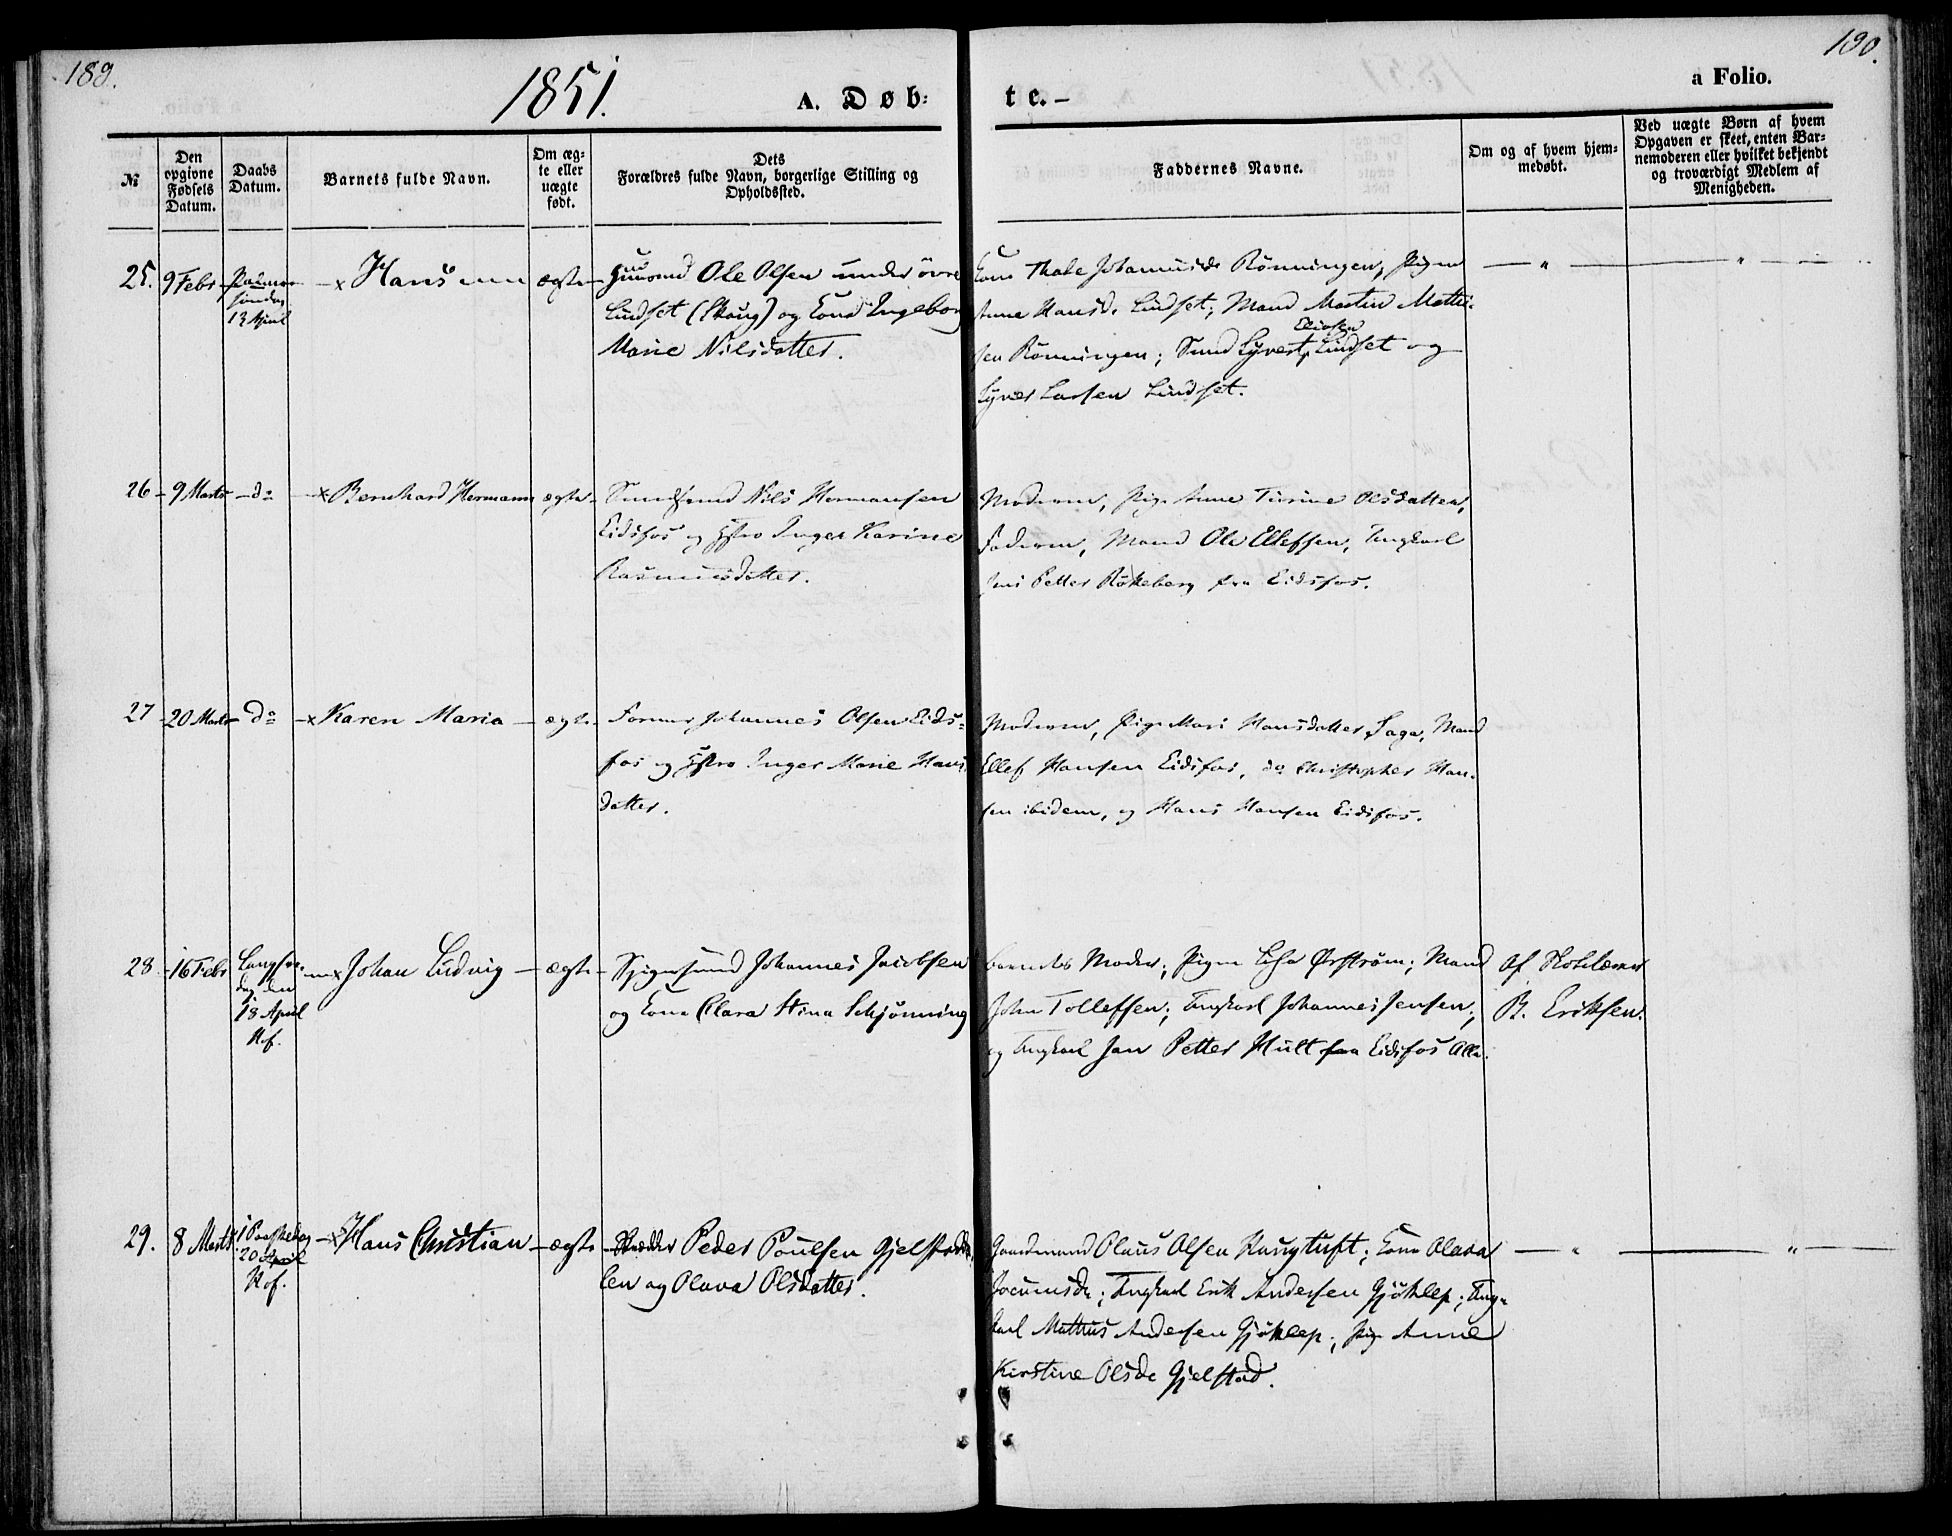 189.
190.
1851.
A. Døb-
te.-
a Folio.
№
Den opgivne Fødsels Datum.
Daabs Datum.
Barnets fulde Navn.
Om ægte eller uægte født.
Dets Forældres fulde Navn, borgerlige Stilling og Opholdssted.
Faddernes Navne.
Om og af hvem hjemmedøbt.
Ved uægte Børn af hvem Opgaven er skeet, enten Barnemoderen eller hvilket bekjendt og troværdigt Medlem af Menigheden.
25. 9 Febr Palmesøndag 13 April × Hans ægte Huusmd Ole Olsen under övre
Lindset (Skoug) og Kone Ingeborg
Marie Nilsdatter.
Kone Thale Johannisd. Rönningen, Pigen
Anne Hansd. Lindset; Mand Martin Mathi-
sen Rönningen; Lindset og
Syver Larsen Lindset.
26 9 Marts do × Bernhard Hermann ægte Nils Hermansen
Eidsfos og Hstro Inger Karine
Rasmusdatter.
Moderen, Pige Anne Olsdatter,
Faderen, Mand Ole Ellefsen, Ungkarl
Jens Petter Rökeberg fra Eidsfos.
27 20 Marts do × Karen Maria ægte Former Johannes Olsen Eids-
fos og Hstro Inger Marie Hans
datter.
Moderen, Pige Mari Hansdatter Saga, Mand
Ellef Hansen Eidsfos, do Christopher Han-
sen ibidem, og Hans Hansen Eidsfos.
28 16 Febr Langfredag den 18 April Hof. × Johan Ludvig ægte Johannes Jacobsen
og Kone Clara Stina Schjönning
barnets Moder; Pigen Lisa Örström; Mand
John Tollefsen; Ungkarl Johannes Jensen;
og Ungkarl Jan Petter Hult fra Eidsfos Alle.
Af Skolelærer
B. Eriksen.
29. 8 Marts 1 Paaskedag 20 April Hof. × Hans Christian ægte Skrædder Peder Poulsen Gjelstad
len og Olava Olsdatter.
Gaardmand Olaus Olsen Haugtuft; Kone Olava
Ungkarl Erik Andersen Gjöklep; Ung-
karl Mathias Andersen Gjöklep; Pige Anne
Kirstine Olsdr Gjelstad.